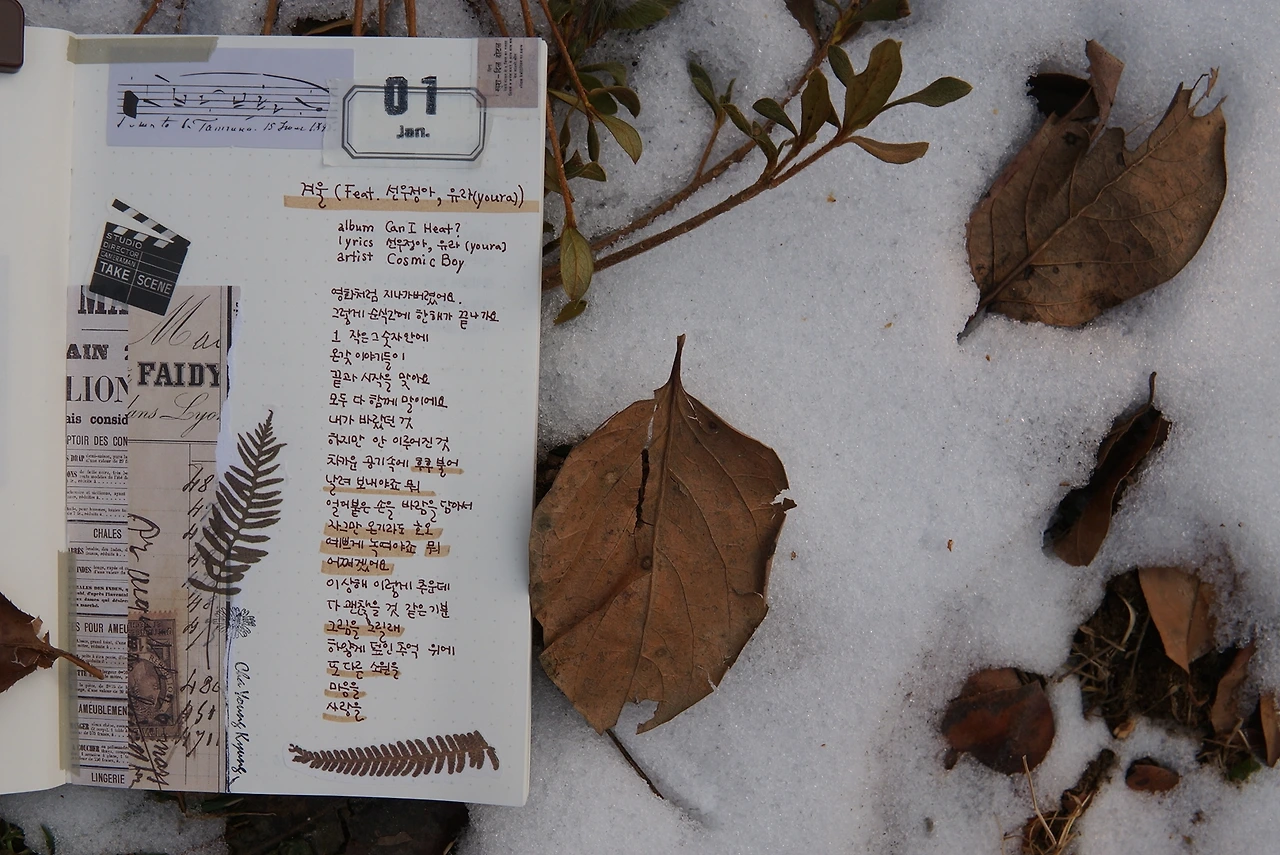 01
Jan.
겨울 (Feat. 선우정아, 유라(youra))
album Can I Heat?
lyrics 선우정아, 유라 (youra)
artist Cosmic Boy
영화처럼 지나가버렸어요.
그렇게 순식간에 한해가 끝나가요
1 작은 그 숫자 안에
온갖 이야기들이
끝과 시작을 맞아요
모두 다 함께 말이에요
내가 바랐던 것
하지만 안 이루어진 것
차가운 공기 속에 후후 불어
날려 보내야죠 뭐
얼어붙은 손을 바람을 담아서
자그만 온기라도 호오
예쁘게 녹여야죠 뭐
어쩌겠어요
이상해 이렇게 추운데
다 괜찮을 것 같은 기분
그림을 그릴래
하얗게 덮인 추억 위에
또 다른 소원을
마음을
사랑을
STUDIO
DIRECTOR
CAMERAMAN
TAKE SCENE
AIN
LION
FAIDY
ans Lyo
ais consid
PTOIR DES CON
CHALES
POUR AMEU
AMEUBLEMEN
LINGERIE
Cha Young Kyung